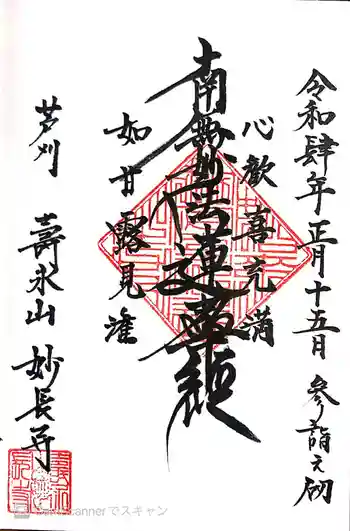 令和肆年正月十五日 参詣之砌
心歓喜充満
南無妙法蓮華経
如甘露見潅
芦刈 壽永山 妙長寺
CamScannerでスキャン